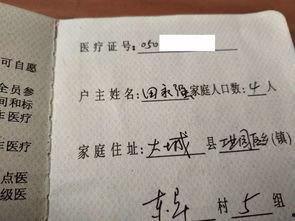 可自愿
全员参
间和标
医疗
医疗
点医
级医
医疗证号:050
户主姓名:田永 家庭人口数:4人
家庭住址:大城 县 (镇)
村 5 组